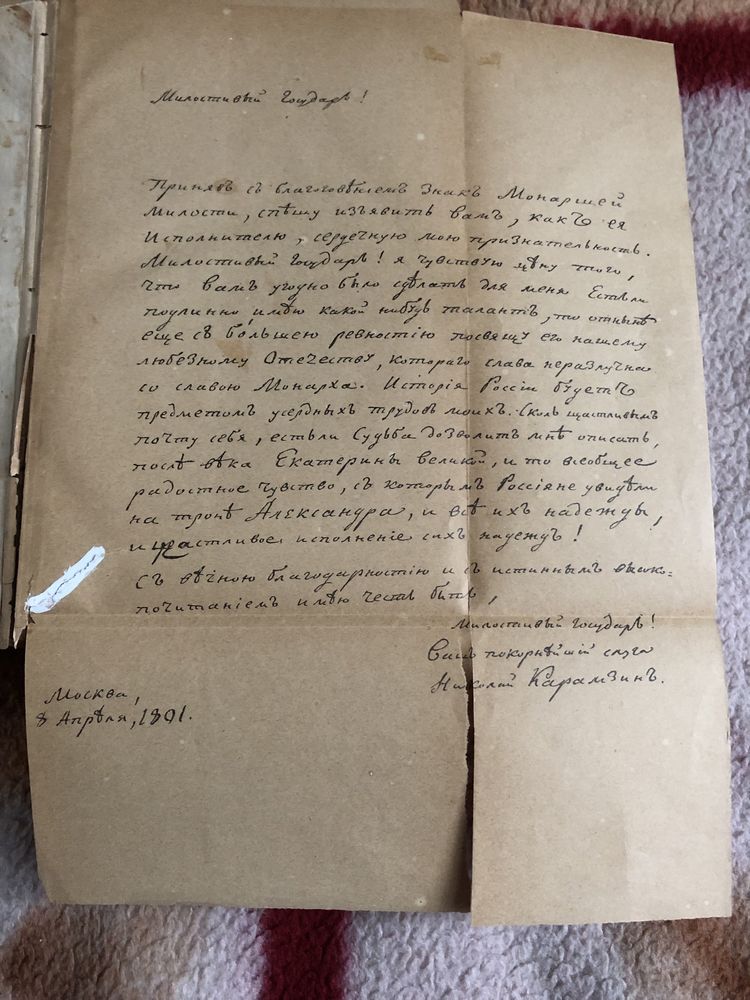 Милостивый Государь!
Принявъ съ благоговѣніемъ знакъ Монаршей
милости, спѣшу изъявить вамъ, какъ ея
Исполнителю, сердечную мою признательность.
Милостивый Государь! я чувствую цѣну того,
что вамъ угодно было сдѣлать для меня Естьли
подлинно имѣю какой нибудь талантъ, то отнынѣ
еще съ большею ревностію посвящу его нашему
любезному Отечеству, котораго слава неразлучна
со славою Монарха. Исторія Россіи будетъ
предметомъ усердныхъ трудовъ моихъ. Сколь щастливымъ
почту себя, естьли Судьба дозволитъ мнѣ описать,
послѣ вѣка Екатерины великой, и то всеобщее
радостное чувство, съ которымъ Россіяне увидѣли
на тронѣ Александра, и всѣ ихъ надежды,
и щастливое исполненіе сихъ надеждъ!
Съ вѣчною благодарностію и съ истиннымъ высоко=
почитаніемъ имѣю честь быть,
Милостивый Государь!
Вашъ покорнѣйшій слуга
Николай Карамзинъ.
Москва,
8 Апрѣля, 1801.